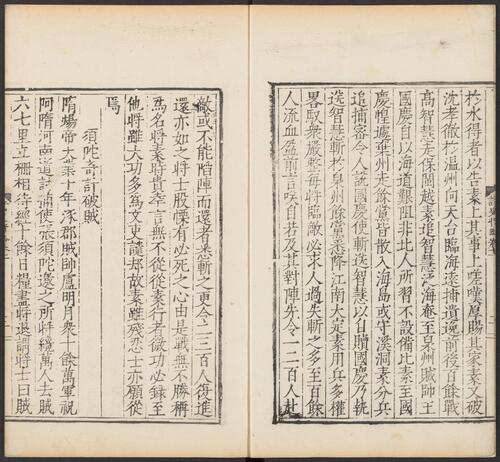 於水得者以告素上其事上嗟嘆厚賜其家素又破
沈孝徹於温州向天台臨海逐捕遺逸前後百餘戰
高智慧走保閩越素追智慧泛海奄至泉州賊帥王
國慶自以海道艱阻非北人所習不設備比素至國
慶惶遽棄州走餘黨皆散入海島或守溪洞素分兵
追捕密令人説國慶使斬送智慧以自贖國慶乃執
送智慧斬於泉州餘黨悉降江南大定素用兵多權
畧馭衆嚴整每將臨敵必求人過失斬之多至百餘
人流血盈前言笑自若及其對陣先令一二百人赴
敵或不能陷陣而還者悉斬之更令二三百人復進
還亦如之將士股慄有必死之心由是戰無不勝稱
爲名將素時貴幸言無不從從素行者微功必録至
他將雖大功多爲文吏譴却故素雖殘忍士亦願從
焉
須陀奇計破賊
隋煬帝大業十年涿郡賊帥盧明月衆十餘萬軍祝
阿隋河南道討捕使張須陀邀之所將纔萬人去賊
六七里立柵相待經十餘日糧盡將退謂將士曰賊